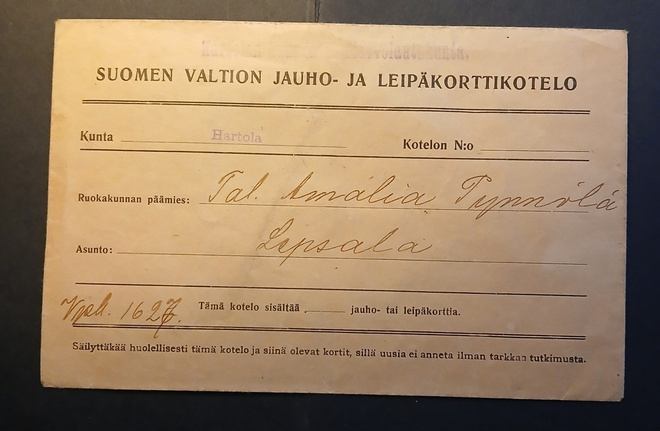 SUOMEN VALTION JAUHO- JA LEIPÄKORTTIKOTELO
Kunta Hartola Kotelon N:o
Ruokakunnan päämies: Tal. Amalia Tynnölä
Asunto: Lepsala
Vpk. 1627. Tämä kotelo sisältää jauho- tai leipäkorttia.
Säilyttäkää huolellisesti tämä kotelo ja siinä olevat kortit, sillä uusia ei anneta ilman tarkkaa tutkimusta.